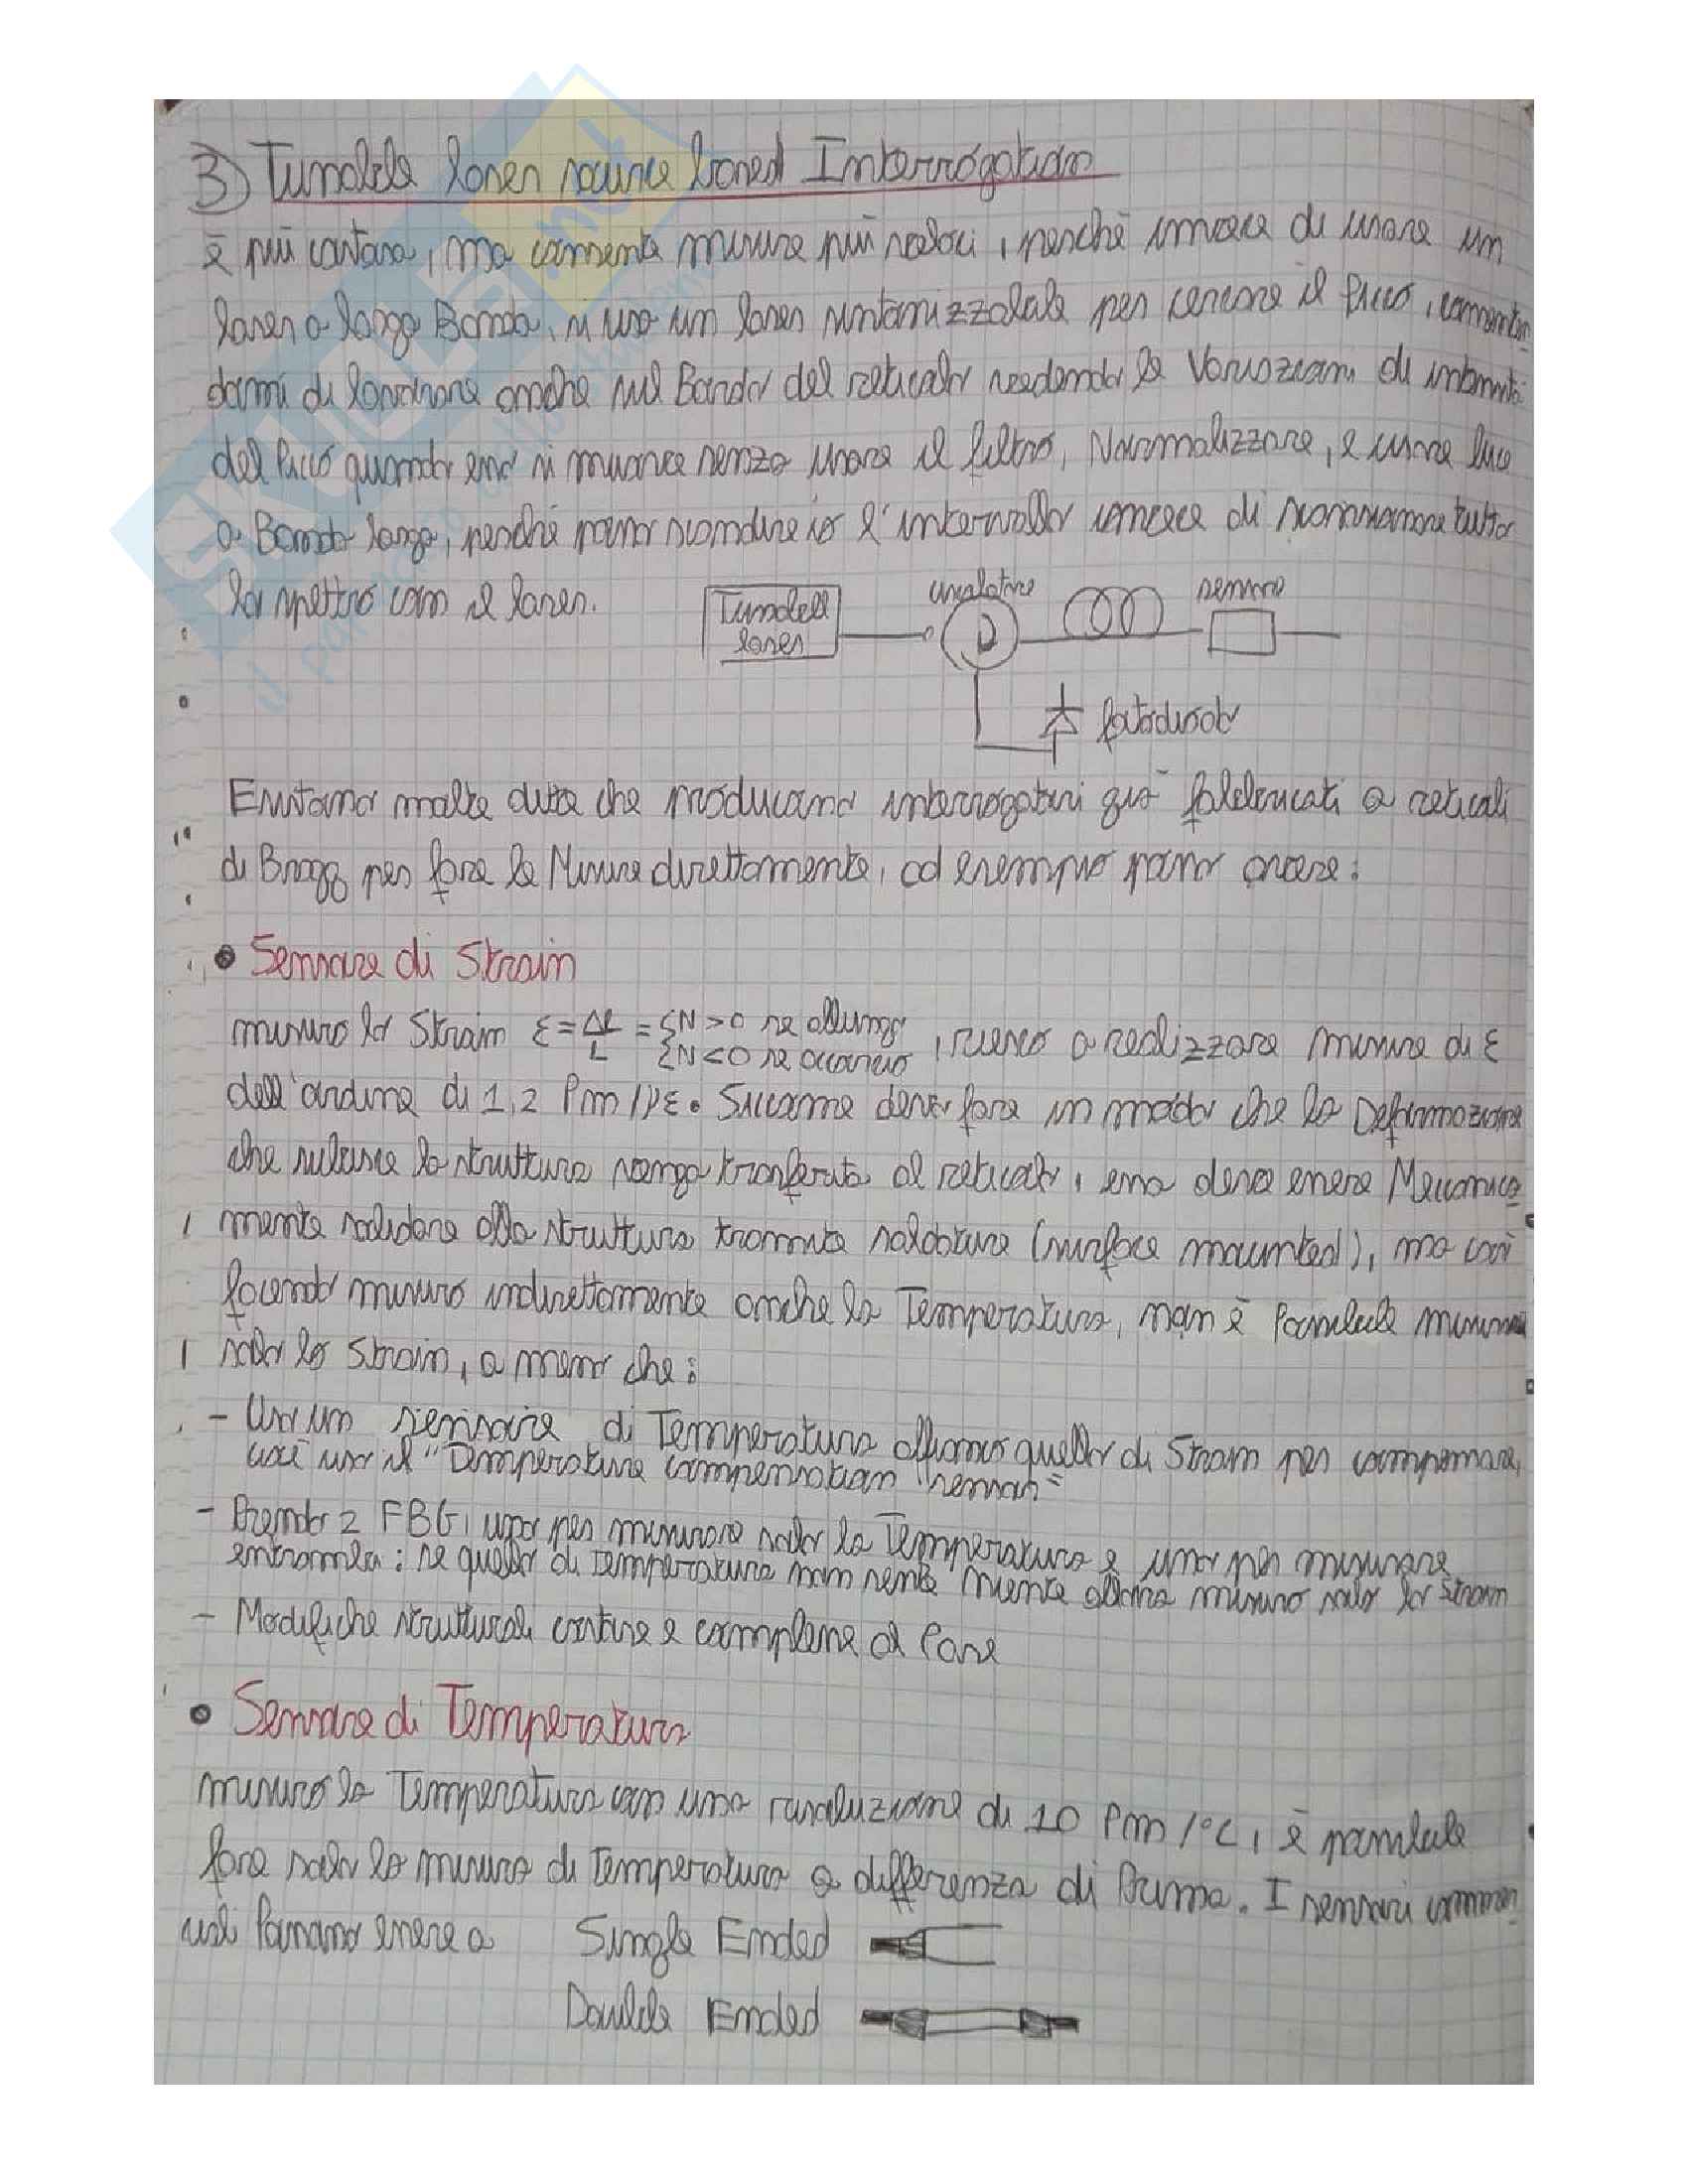 3) Tunable laser source based Interrogation
è più costosa, ma consente misure più veloci, perché invece di usare un
laser a larga Banda, si usa un laser sintonizzabile per cercare il Picco, consenten-
domi di lavorare anche sul Bordo del reticolo vedendo le Variazioni di intensità
del Picco quando esso si muove senza usare il filtro, Normalizzare, e usare luce
a Banda larga, perché posso scandire io l'intervallo invece di scansionare tutto
lo spettro con il laser.
Tunabell laser
circolatore
sensore
fotodiodo
Esistono molte ditte che producono interrogatori già fabbricati a reticoli
di Bragg per fare le Misure direttamente, ad esempio posso avere:
• Sensore di Strain
misuro lo Strain ε = Δl/L = { N > 0 se allungo
{ N < 0 se accorcio , riesco a realizzare misure di ε
dell'ordine di 1,2 Pm/με. Siccome devo fare in modo che la Deformazione
che subisce la struttura venga trasferita al reticolo, essa deve essere Meccanica-
mente solidare alla struttura tramite saldatura (surface mounted), ma così
facendo misuro indirettamente anche la Temperatura, non è Possibile misurare
solo lo Strain, a meno che:
- Uso un sensore di Temperatura affianco quello di Strain per compensare,
così uso il "Temperature compensation sensor"
- Prendo 2 FBG, uno per misurare solo la Temperatura e uno per misurare
entrambi: se quello di temperatura non sente niente allora misuro solo lo strain
- Modifiche strutturali costose e complesse al Pose
• Sensore di Temperatura
misuro la Temperatura con una risoluzione di 10 Pm/°C, è possibile
fare solo la misura di Temperatura a differenza di Prima. I sensori commer-
ciali Possono essere a Single Ended
Double Ended
SKUOLA.net